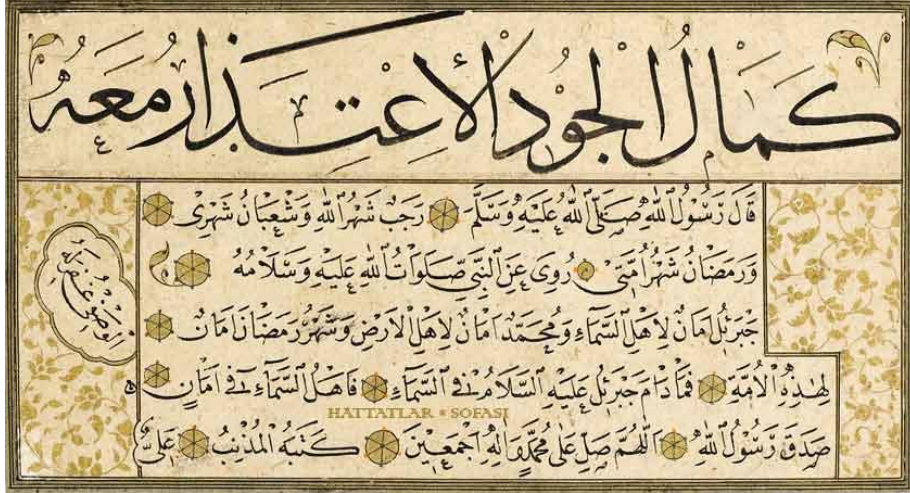 كمال الجود الاعتذار معه
قَالَ رَسُولُ اللهِ صَلَّى اللهُ عَلَيْهِ وَسَلَّمَ رَجَبُ شَهْرُ اللهِ وَشَعْبَانُ شَهْرِى
وَرَمَضَانُ شَهْرُ اُمَّتِى رُوِىَ عَنِ النَّبِىِّ صَلَوَاتُ اللهِ عَلَيْهِ وَسَلَامُهُ
جَبْرَئِلُ اَمَانٌ لِاَهْلِ السَّمَاءِ وَمُحَمَّدٌ اَمَانٌ لِاَهْلِ الْاَرْضِ وَشَهْرُ رَمَضَانَ اَمَانٌ
لِهٰذِهِ الْاُمَّةِ فَمَا دَامَ جَبْرَئِلُ عَلَيْهِ السَّلَامُ فِى السَّمَاءِ فَاَهْلُ السَّمَاءِ فِى اَمَانٍ
صَدَقَ رَسُولُ اللهِ اَللّٰهُمَّ صَلِّ عَلٰى مُحَمَّدٍ وَاٰلِهِ اَجْمَعِينَ كَتَبَهُ الْمُذْنِبُ عَلِىُّ
الوصفى غفر له
HATTATLAR SOFASI